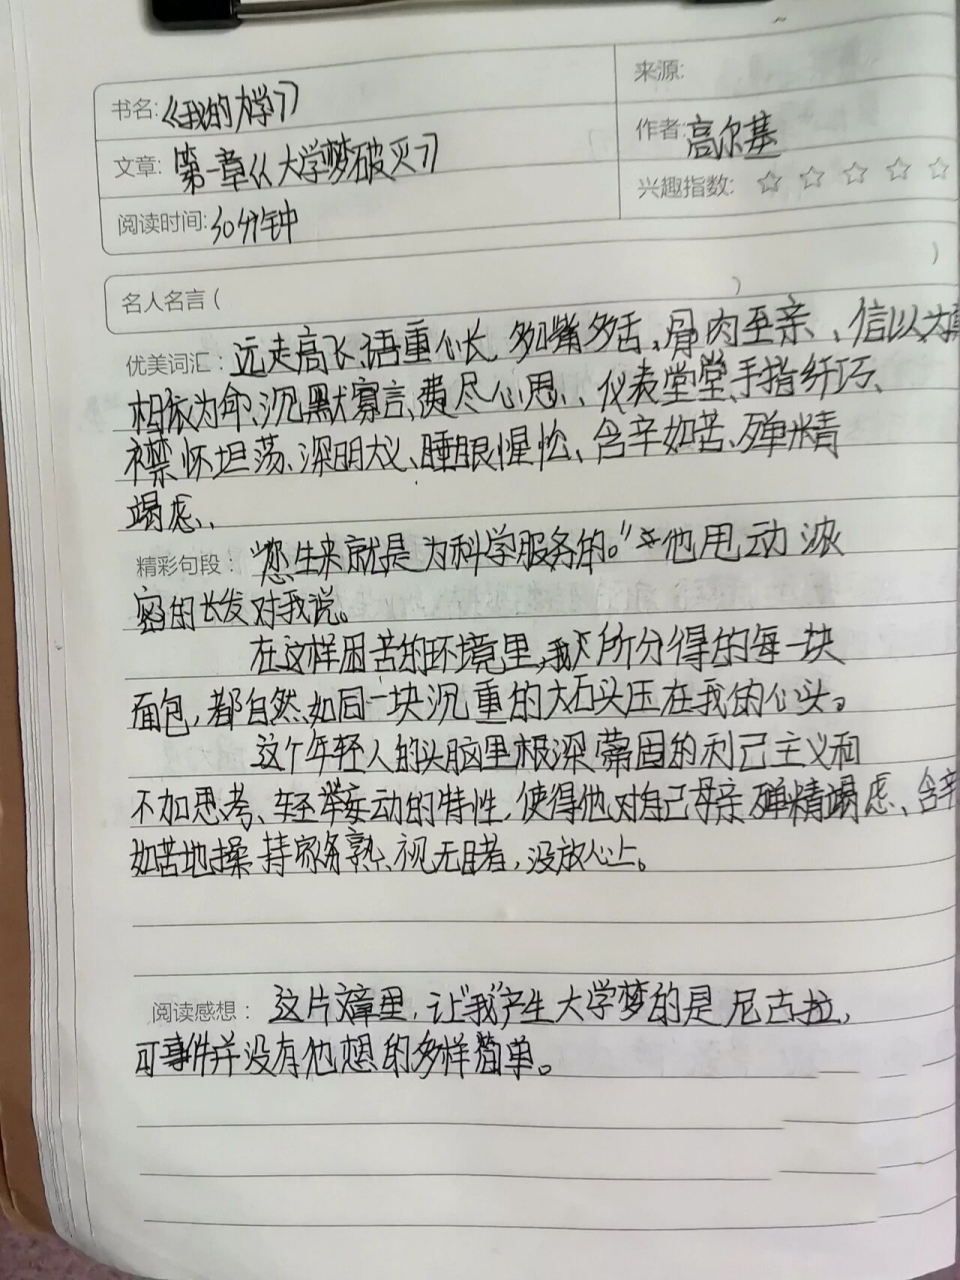 来源:
书名:《我的大学》
作者:高尔基
文章: 第一章《大学梦破灭》
兴趣指数: ☆ ☆ ☆ ☆ ☆
阅读时间:30分钟
名人名言( )
优美词汇: 远走高飞、语重心长、多嘴多舌、骨肉至亲、、信以为真
相依为命、沉默寡言、费尽心思、、仪表堂堂、手指纤巧、
襟怀坦荡、深明大义、睡眼惺忪、含辛如苦、殚精
竭虑、、
精彩句段: “您生来就是为科学服务的。”他甩动浓
密的长发对我说。
在这样困苦的环境里,我所分得的每一块
面包,都自然如同一块沉重的大石头压在我的心头。
这个年轻人的头脑里极深蒂固的利己主义和
不加思考、轻举妄动的特性,使得他对自己母亲殚精竭虑、含辛
如苦地操持家务熟视无睹,没放心上。
阅读感想: 这片文章里,让“我”产生大学梦的是尼古拉,
可事件并没有他想的多样简单。